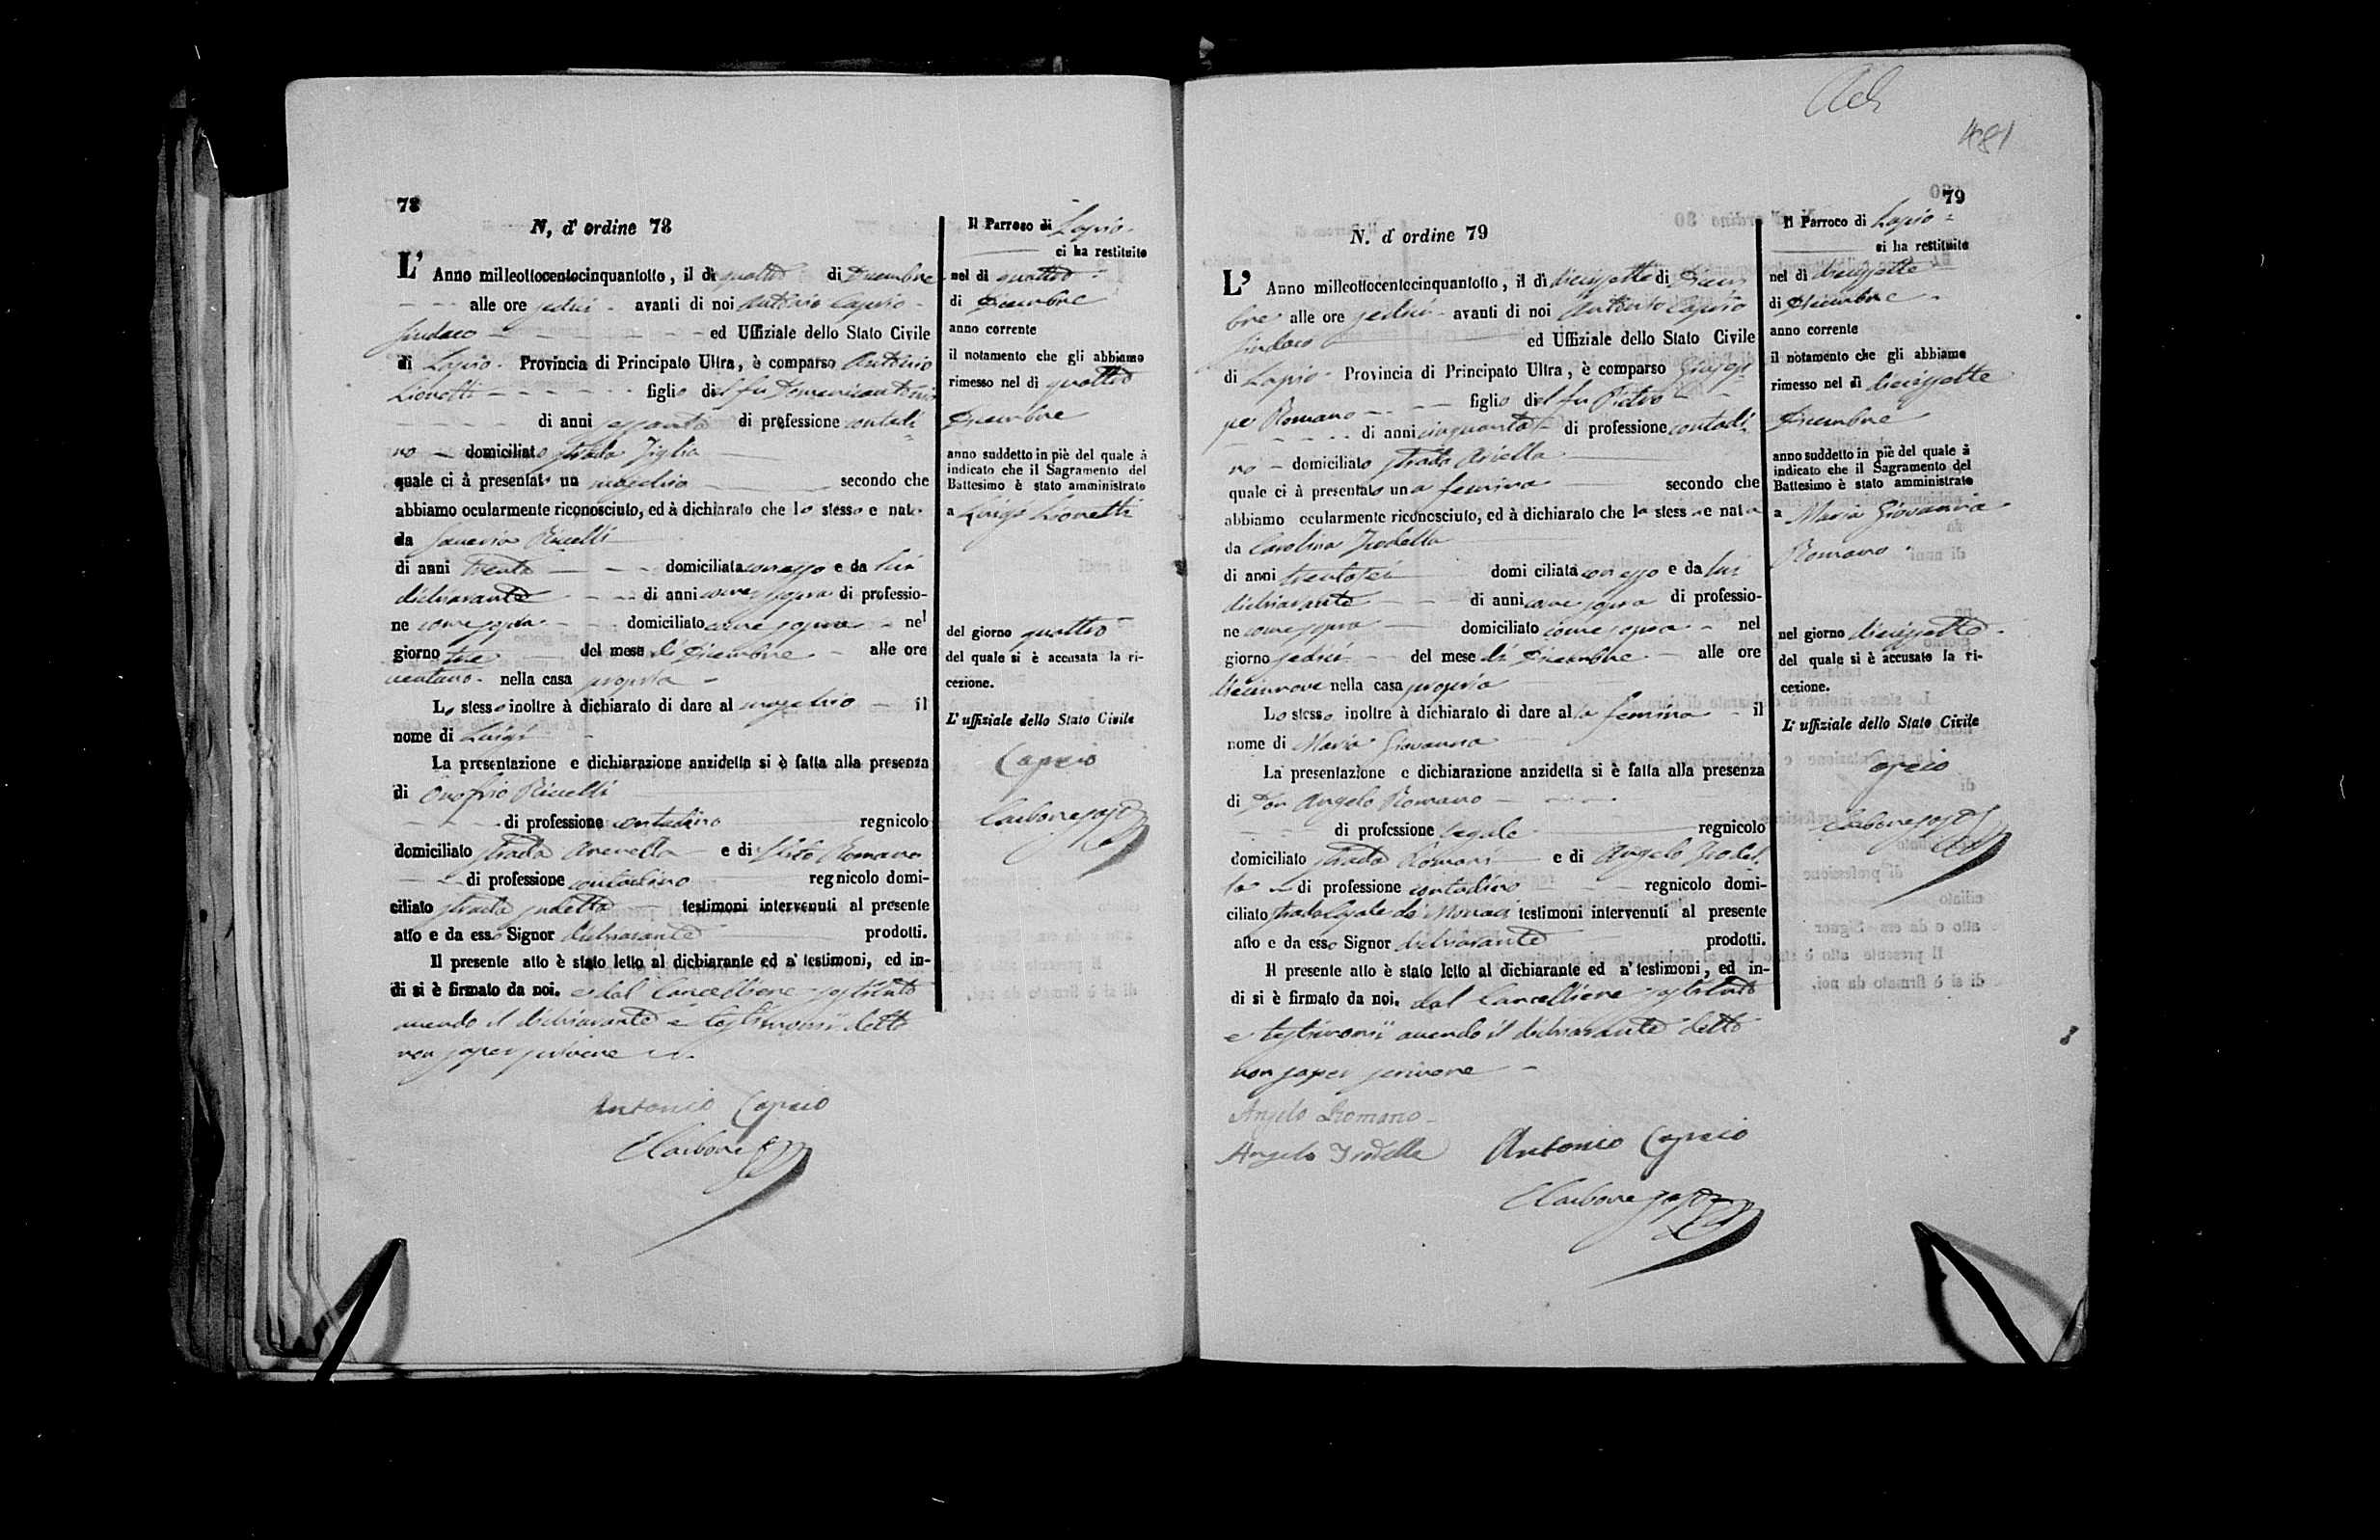 78
N, d' ordine 78
L' Anno milleottocentocinquantotto, il dì quattro di Dicembre
alle ore sedici avanti di noi Antonio Caprio
Sindaco ed Uffiziale dello Stato Civile
di Lapio Provincia di Principato Ultra, è comparso Antonio
Lionetti figlio del fu Domenicantonio
di anni sessanta di professione contadi-
no domiciliato strada Figlia
quale ci à presentato un maschio secondo che
abbiamo ocularmente riconosciuto, ed à dichiarato che lo stesso e nato
da Saveria
di anni trenta domiciliata con esso e da lui
dichiarante di anni come sopra di professio-
ne come sopra domiciliato come sopra nel
giorno tre del mese di Dicembre alle ore
ventuno nella casa propria
Lo stesso inoltre à dichiarato di dare al maschio il
nome di Luigi
La presentazione e dichiarazione anzidetta si è fatta alla presenza
di Onofrio
di professione contadino regnicolo
domiciliato strada e di Sisto Romano
di professione contadino regnicolo domi-
ciliato strada sudetta testimoni intervenuti al presente
atto e da esso Signor dichiarante prodotti.
Il presente atto è stato letto al dichiarante ed a' testimoni, ed in-
di si è firmato da noi. e dal Cancelliere sostituto
avendo il dichiarante e testimonii detto
non saper scrivere
Antonio Caprio
E Carbone
Il Parroco di Lapio
ci ha restituito
nel di quattro
di Dicembre
anno corrente
il notamento che gli abbiamo
rimesso nel di quattro
Dicembre
anno suddetto in piè del quale à
indicato che il Sagramento del
Battesimo è stato amministrato
a Luigi Lionetti
del giorno quattro
del quale si è accusata la ri-
cezione.
L' uffiziale dello Stato Civile
Caprio
Carbone sost
481
79
N. d' ordine 79
L' Anno milleottocentocinquantotto, il dì diciassette di Dicem
bre alle ore sedici avanti di noi Antonio Caprio
Sindaco ed Uffiziale dello Stato Civile
di Lapio Provincia di Principato Ultra, è comparso Giusep
pe Romano figlio del fu Pietro
di anni cinquanta di professione contadi-
no domiciliato strada Ariella
quale ci à presentato una femina secondo che
abbiamo ocularmente riconosciuto, ed à dichiarato che la stessa e nata
da Carolina Trodella
di anni trentasei domiciliata con esso e da lui
dichiarante di anni come sopra di professio-
ne come sopra domiciliato come sopra nel
giorno sedici del mese di Dicembre alle ore
diecinnove nella casa propria
Lo stesso inoltre à dichiarato di dare alla femina il
nome di Maria Giovanna
La presentazione e dichiarazione anzidetta si è fatta alla presenza
di Don Angelo Romano
di professione legale regnicolo
domiciliato strada Romani e di Angelo Trodel-
la di professione contadino regnicolo domi-
ciliato strada testimoni intervenuti al presente
atto e da esso Signor dichiarante prodotti.
Il presente atto è stato letto al dichiarante ed a' testimoni, ed in-
di si è firmato da noi. dal Cancelliere sostituto
e testimonii avendo il dichiarante detto
non saper scrivere
Angelo Romano
Angelo Trodella Antonio Caprio
E Carbone sost
Il Parroco di Lapio
ci ha restituito
nel di diciassette
di Dicembre
anno corrente
il notamento che gli abbiamo
rimesso nel dì diciassette
Dicembre
anno suddetto in piè del quale à
indicato che il Sagramento del
Battesimo è stato amministrato
a Maria Giovanna
Romano
nel giorno diciassette
del quale si è accusato la ri-
cezione.
L' uffiziale dello Stato Civile
Caprio
Carbone sost